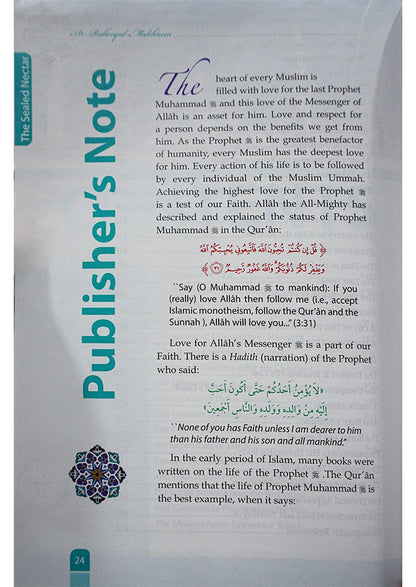 Ar-Raheequl-Makhtum
The Sealed Nectar
Publisher's Note
The heart of every Muslim is
filled with love for the last Prophet
Muhammad ﷺ and this love of the Messenger of
Allâh is an asset for him. Love and respect for
a person depends on the benefits we get from
him. As the Prophet ﷺ is the greatest benefactor
of humanity, every Muslim has the deepest love
for him. Every action of his life is to be followed
by every individual of the Muslim Ummah.
Achieving the highest love for the Prophet ﷺ
is a test of our Faith. Allâh the All-Mighty has
described and explained the status of Prophet
Muhammad ﷺ in the Qur'ân:
﴿ قُلْ إِن كُنتُمْ تُحِبُّونَ ٱللَّهَ فَٱتَّبِعُونِى يُحْبِبْكُمُ ٱللَّهُ
وَيَغْفِرْ لَكُمْ ذُنُوبَكُمْ وَٱللَّهُ غَفُورٌ رَّحِيمٌ ٣١ ﴾
``Say (O Muhammad ﷺ to mankind): If you
(really) love Allâh then follow me (i.e., accept
Islamic monotheism, follow the Qur'ân and the
Sunnah ), Allâh will love you...'' (3:31)
Love for Allâh's Messenger ﷺ is a part of our
Faith. There is a Hadith (narration) of the Prophet
who said:
«لَا يُؤْمِنُ أَحَدُكُمْ حَتَّى أَكُونَ أَحَبَّ
إِلَيْهِ مِنْ وَالِدِهِ وَوَلَدِهِ وَالنَّاسِ أَجْمَعِينَ»
``None of you has Faith unless I am dearer to him
than his father and his son and all mankind.''
In the early period of Islam, many books were
written on the life of the Prophet ﷺ .The Qur'ân
mentions that the life of Prophet Muhammad ﷺ is
the best example, when it says:
24